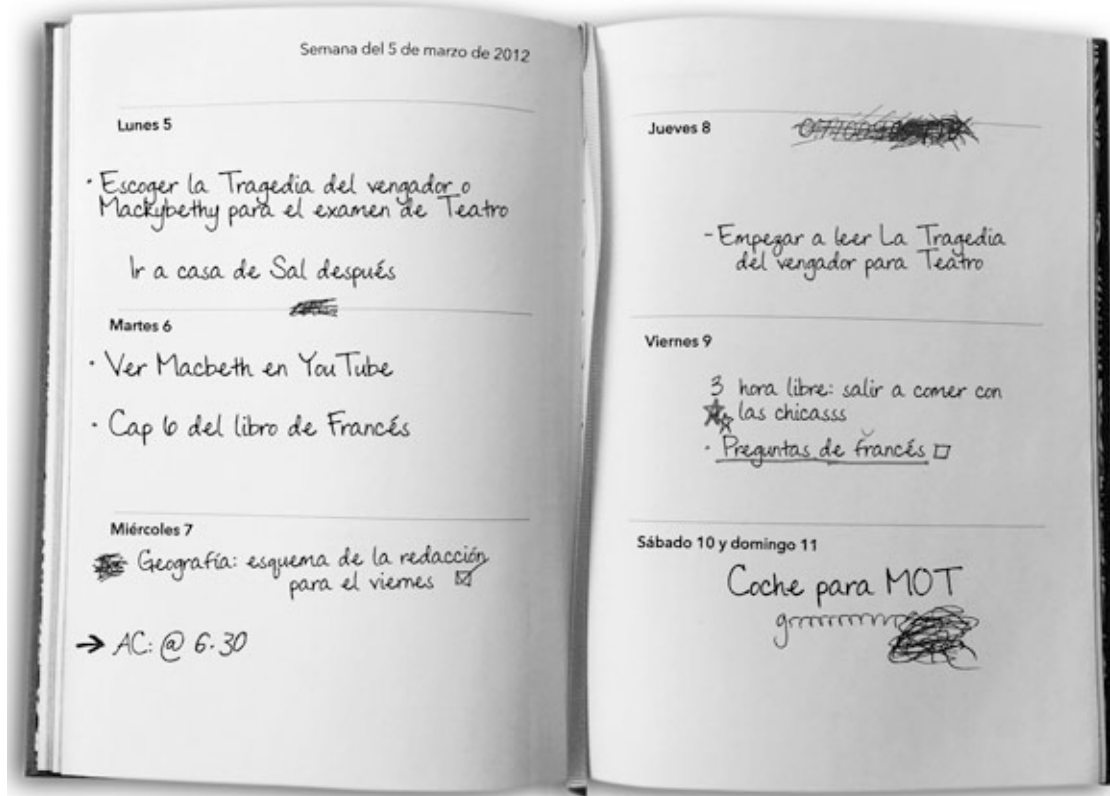 Semana del 5 de marzo de 2012
Lunes 5
· Escoger la Tragedia del vengador o
Mackybethy para el examen de Teatro
Ir a casa de Sal después
Martes 6
· Ver Macbeth en YouTube
· Cap 6 del libro de Francés
Miércoles 7
Geografía: esquema de la redacción
para el viernes ☑
→ AC: @ 6.30
Jueves 8
- Empezar a leer La Tragedia
del vengador para Teatro
Viernes 9
3 hora libre: salir a comer con
las chicasss
· Preguntas de francés ☐
Sábado 10 y domingo 11
Coche para MOT
grrrrrrrrr